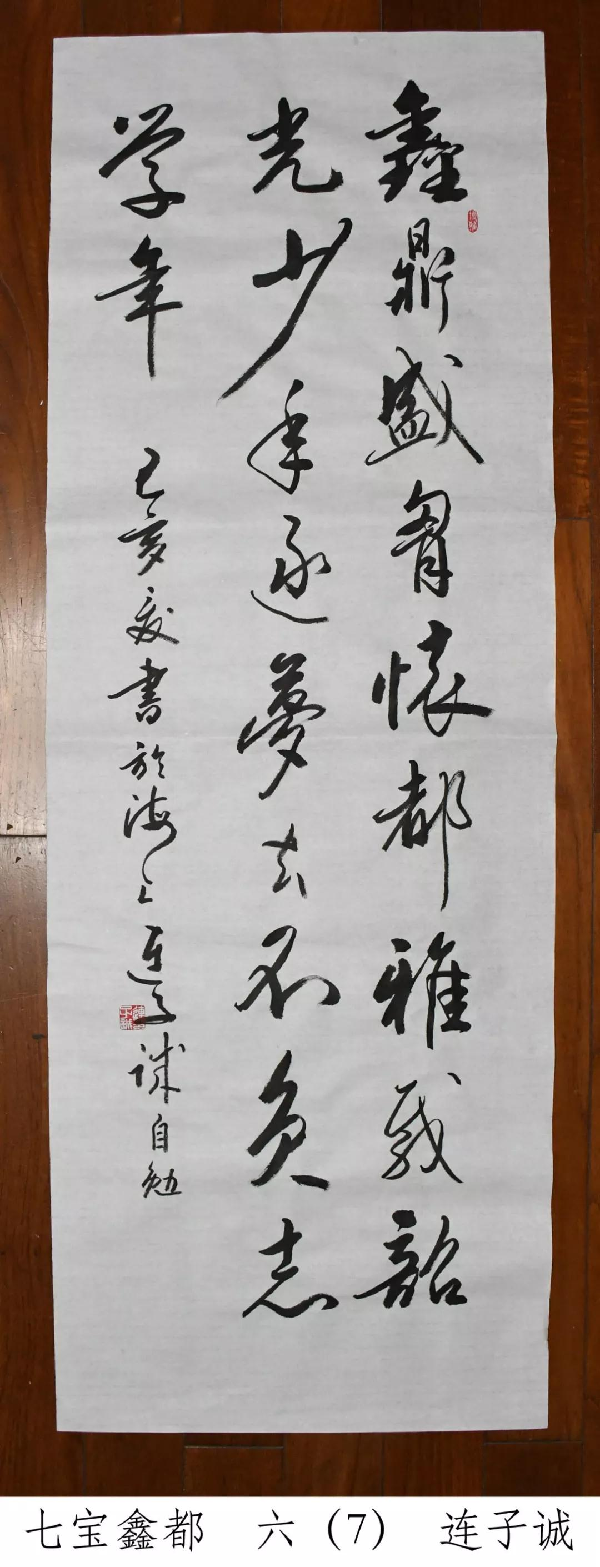 鑫鼎盛胷懷都雅韶
光少年逐夢去不負志
学年
己亥夏書於海上連子誠自勉
七宝鑫都 六（7） 连子诚